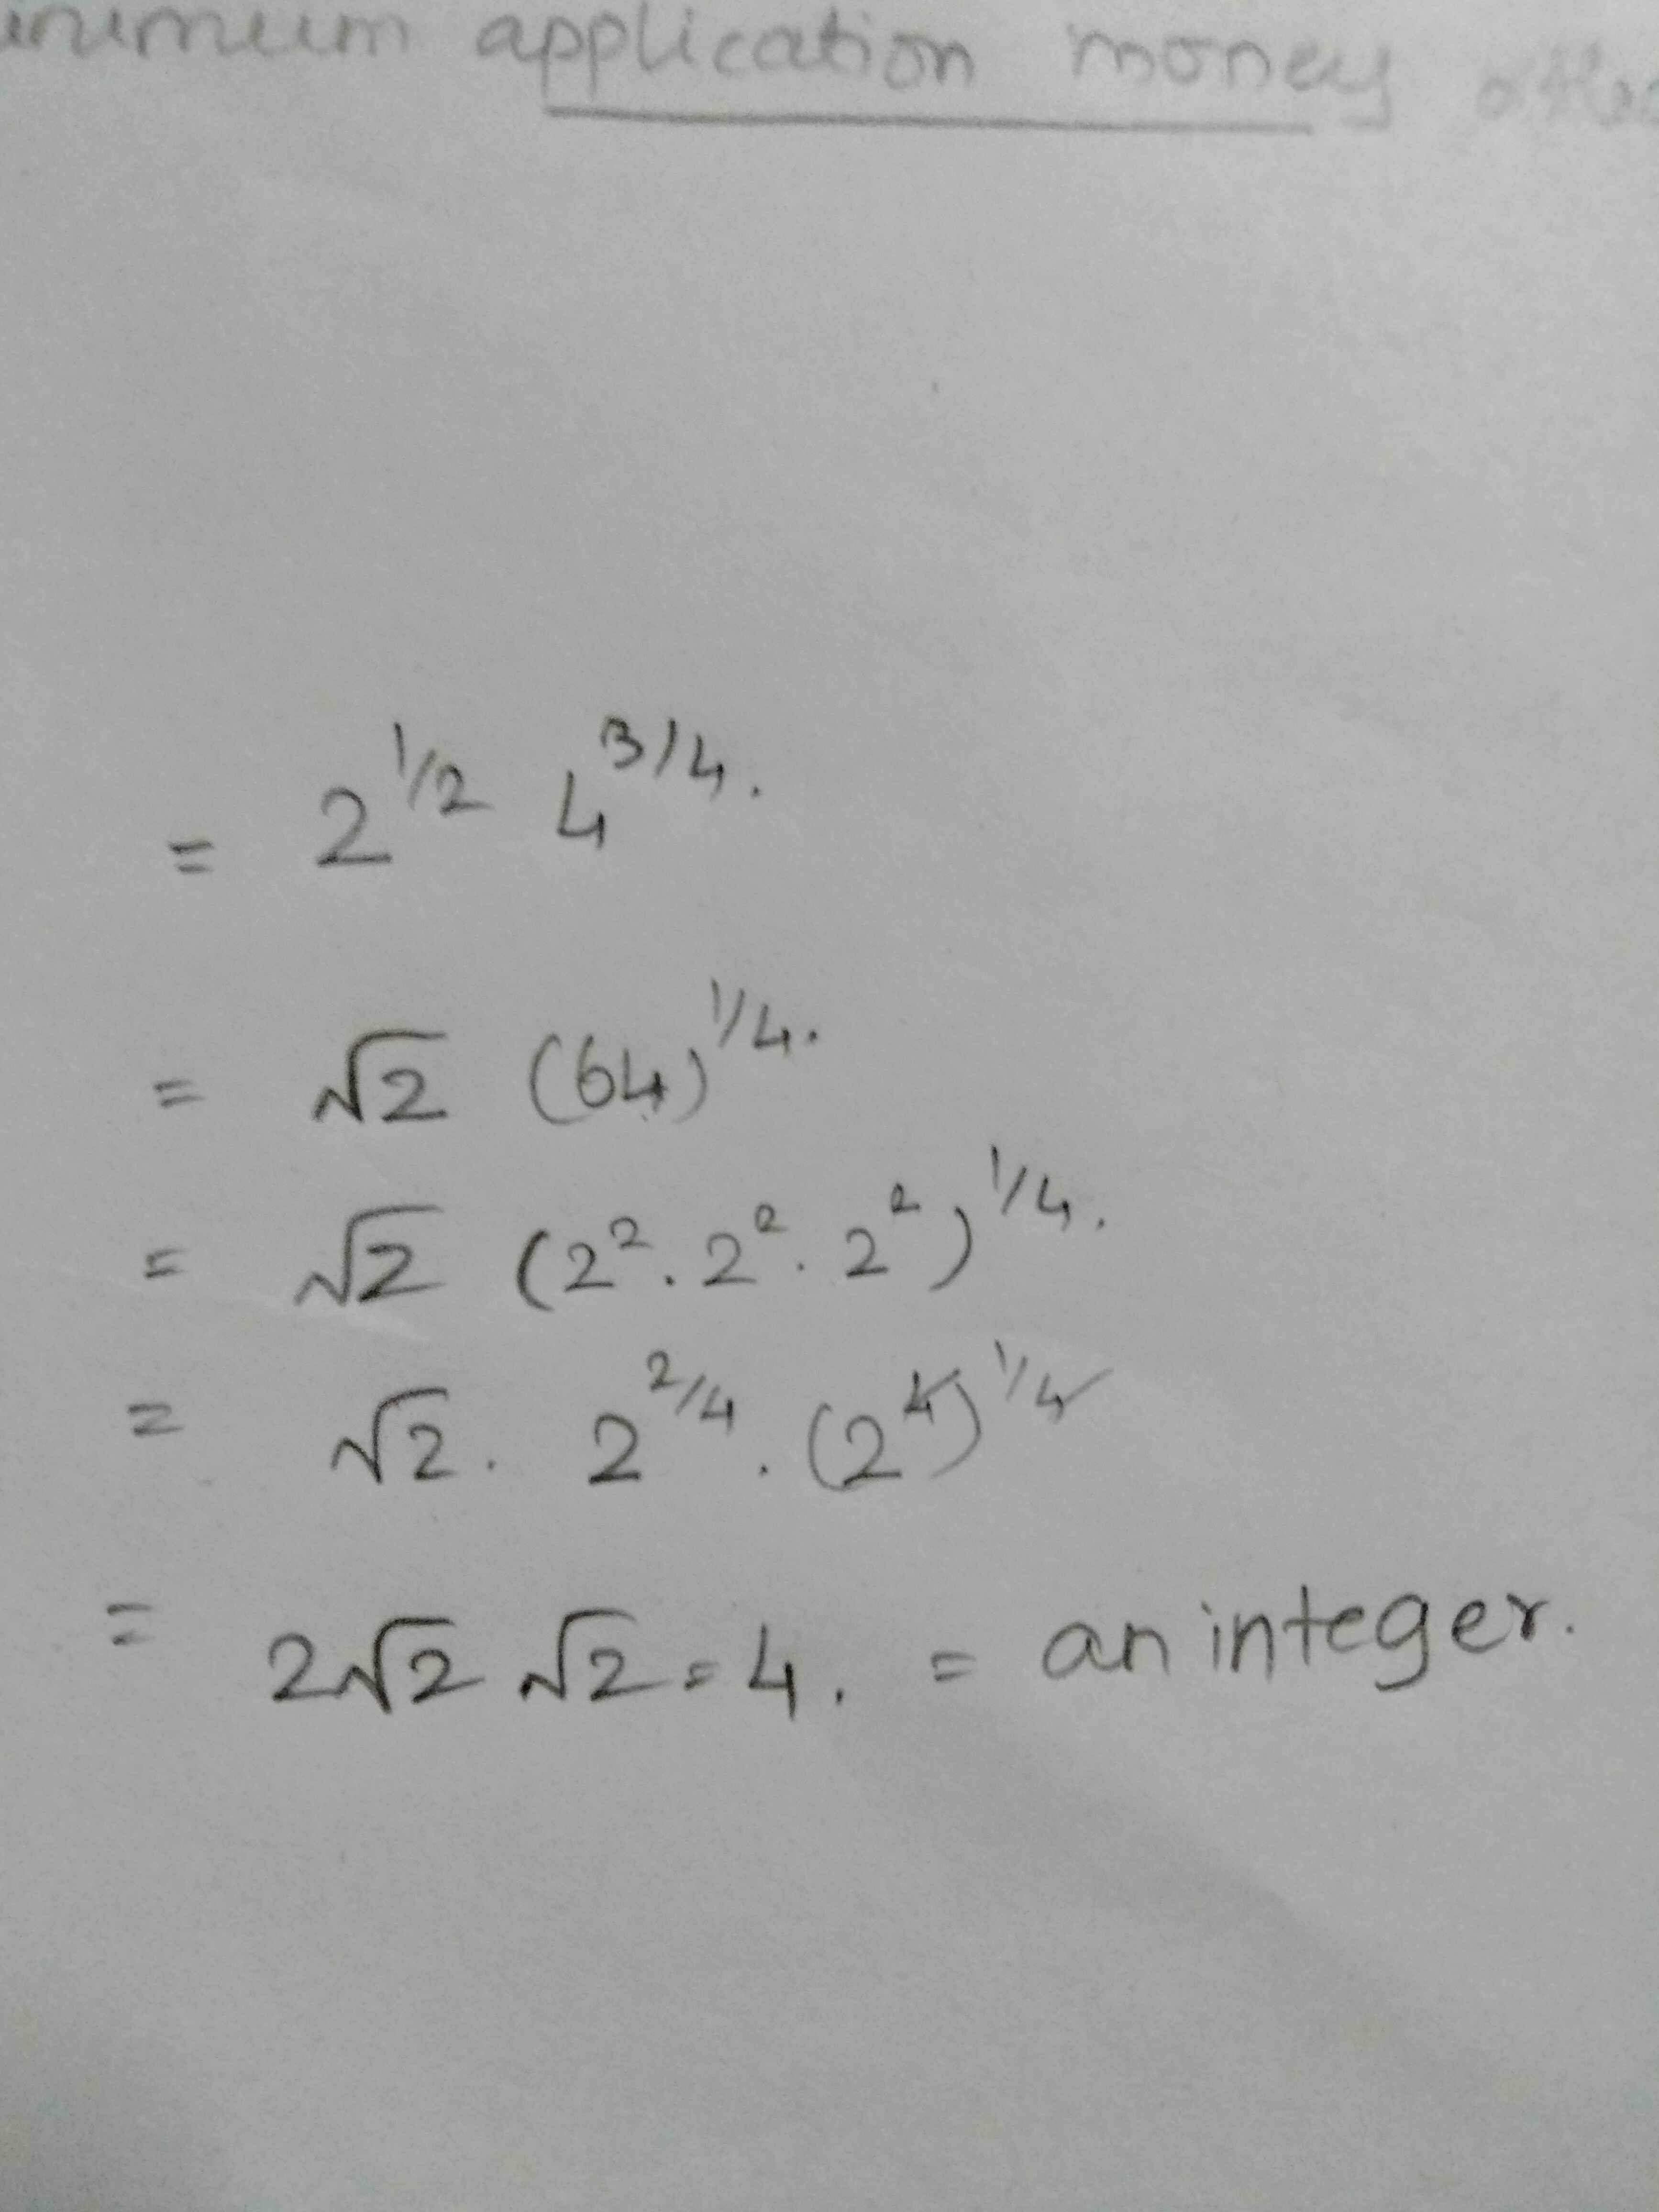 application money
= 2^1/2 4^3/4.
= √2 (64)^1/4.
= √2 (2^2 . 2^2 . 2^2)^1/4.
= √2 . 2^2/4 . (2^4)^1/4
= 2√2 √2 = 4 . = an integer.